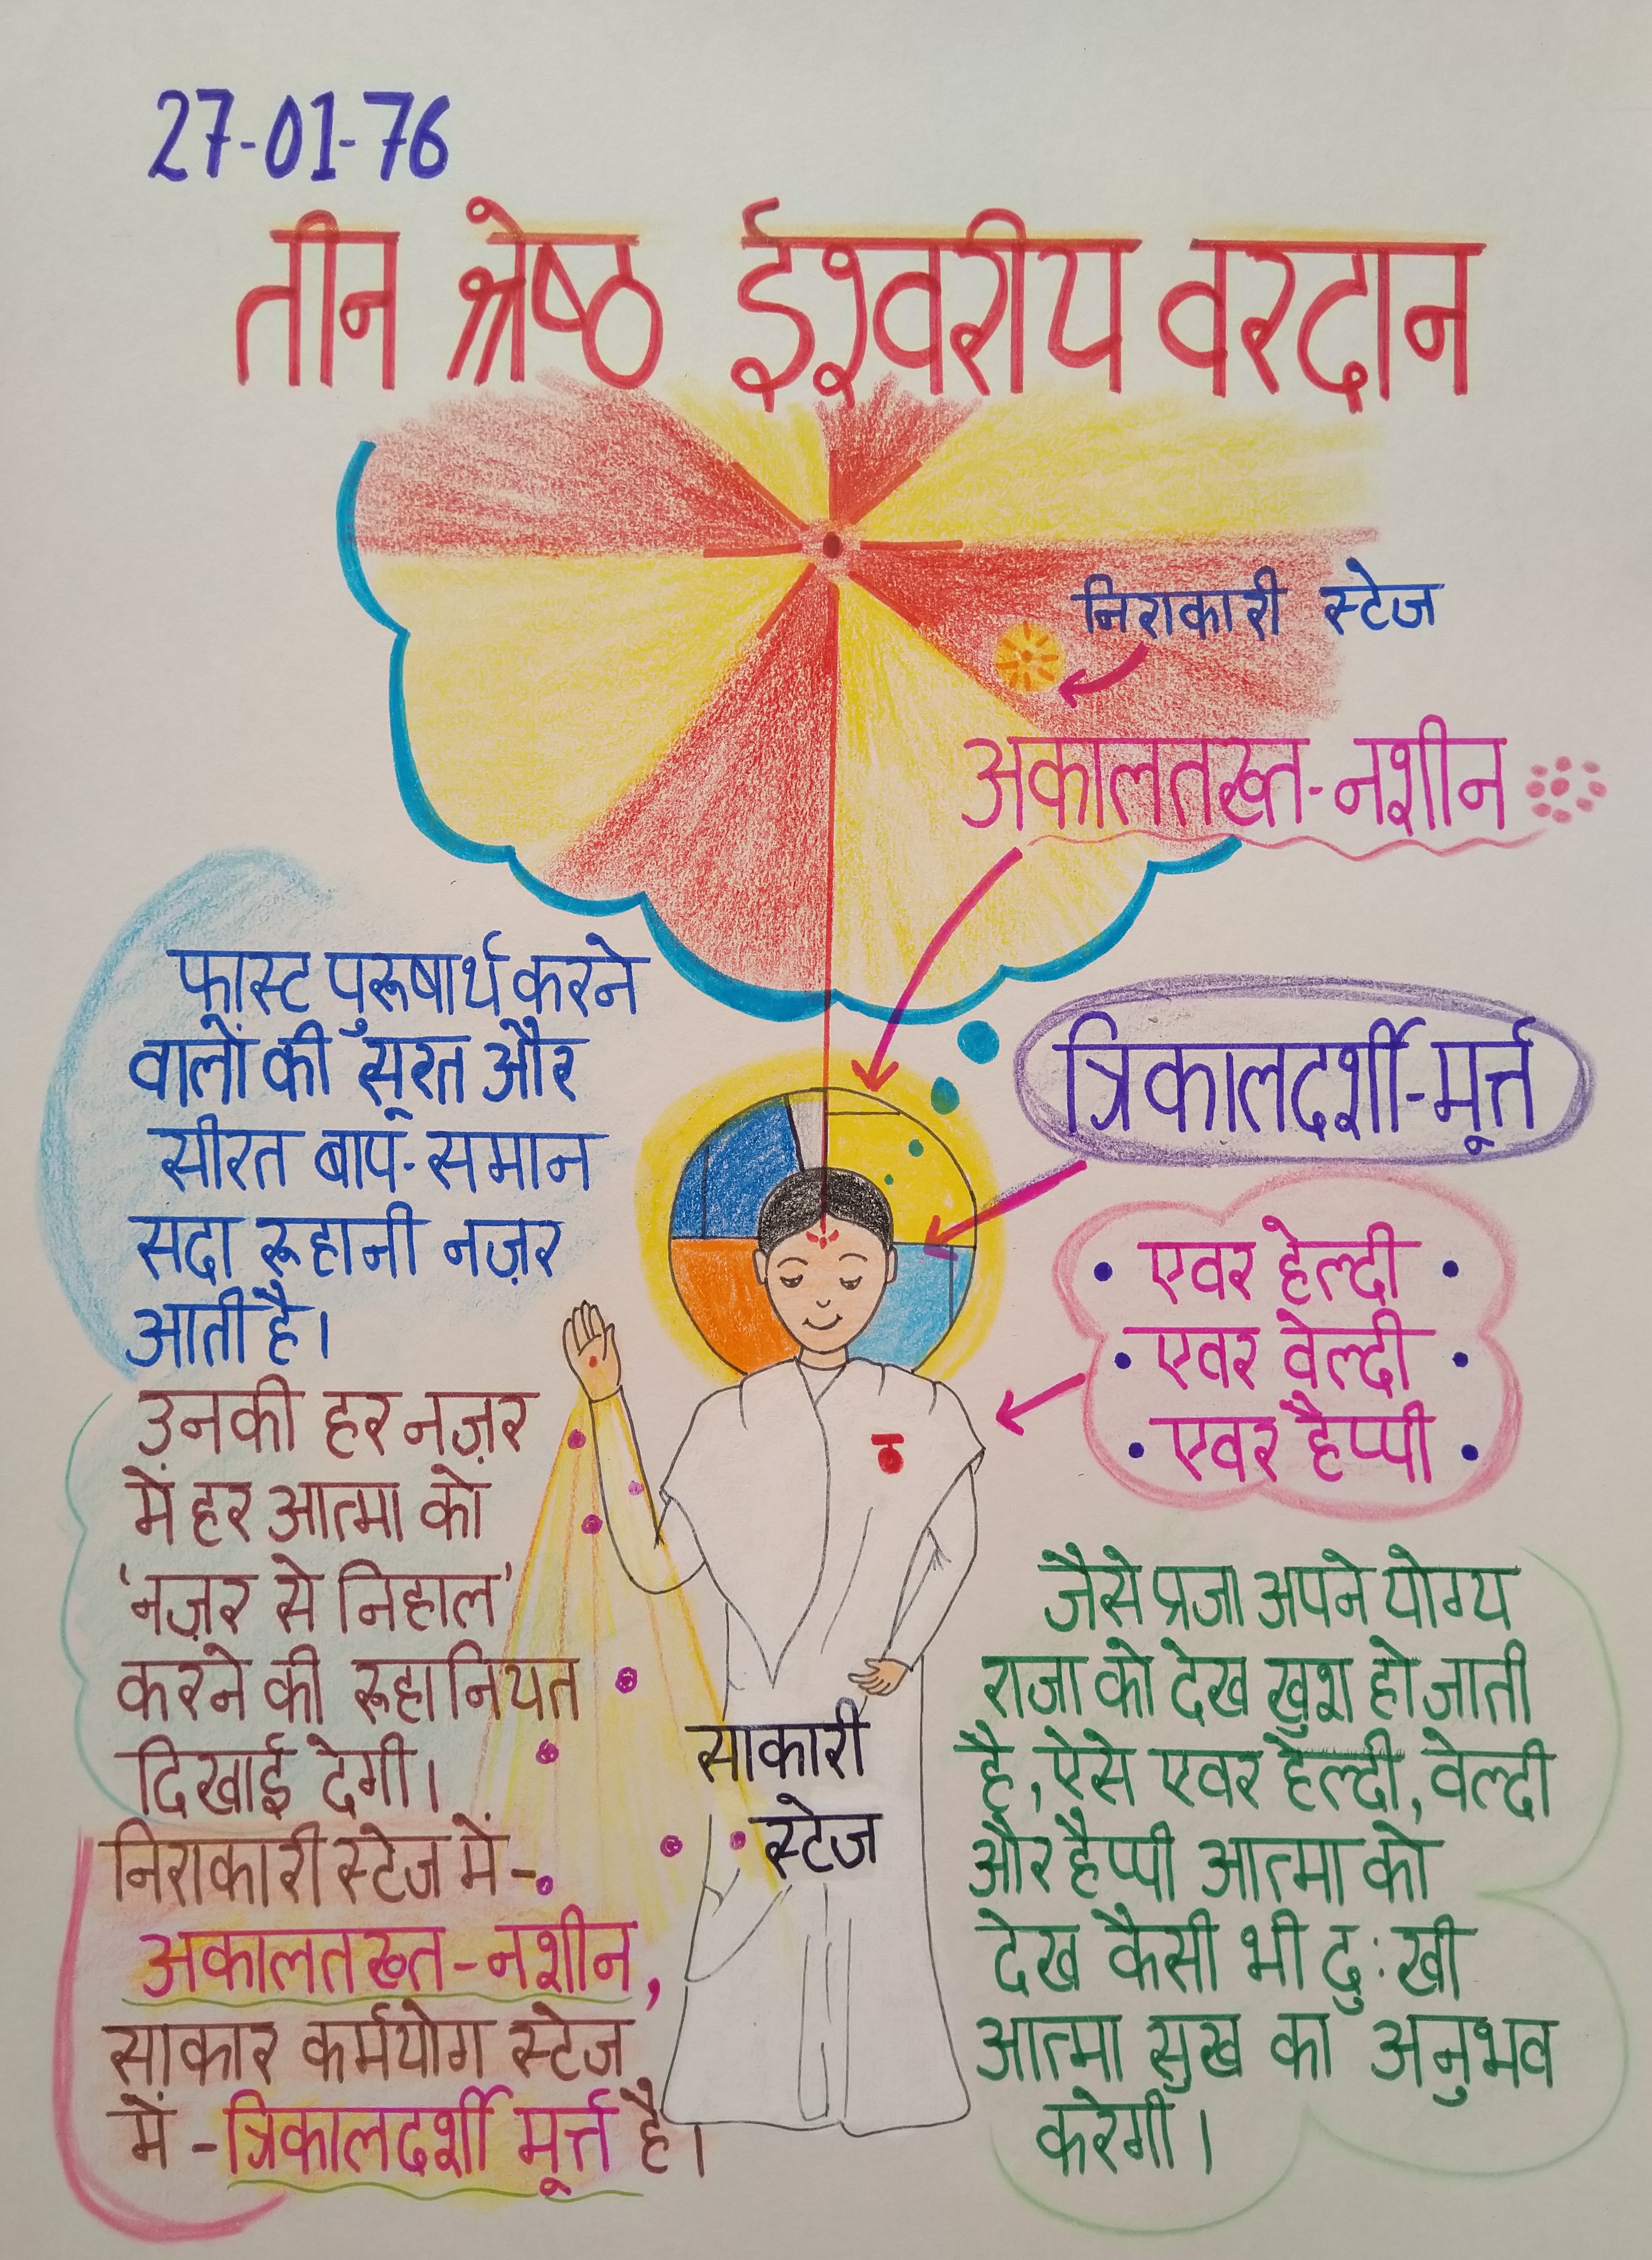 27-01-76
तीन श्रेष्ठ ईश्वरीय वरदान
निराकारी स्टेज
अकालतख्त-नशीन
फास्ट पुरूषार्थ करने
वालों की सूरत और
सीरत बाप-समान
सदा रूहानी नज़र
आती है।
उनकी हर नज़र
में हर आत्मा को
'नज़र से निहाल'
करने की रूहानियत
दिखाई देगी।
निराकारी स्टेज में-
अकालतख्त-नशीन,
साकार कर्मयोग स्टेज
में-त्रिकालदर्शी मूर्त्त है।
त्रिकालदर्शी-मूर्त्त
• एवर हेल्दी •
• एवर वेल्दी •
• एवर हैप्पी •
साकारी
स्टेज
जैसे प्रजा अपने योग्य
राजा को देख खुश हो जाती
है, ऐसे एवर हेल्दी, वेल्दी
और हैप्पी आत्मा को
देख कैसी भी दुःखी
आत्मा सुख का अनुभव
करेगी।